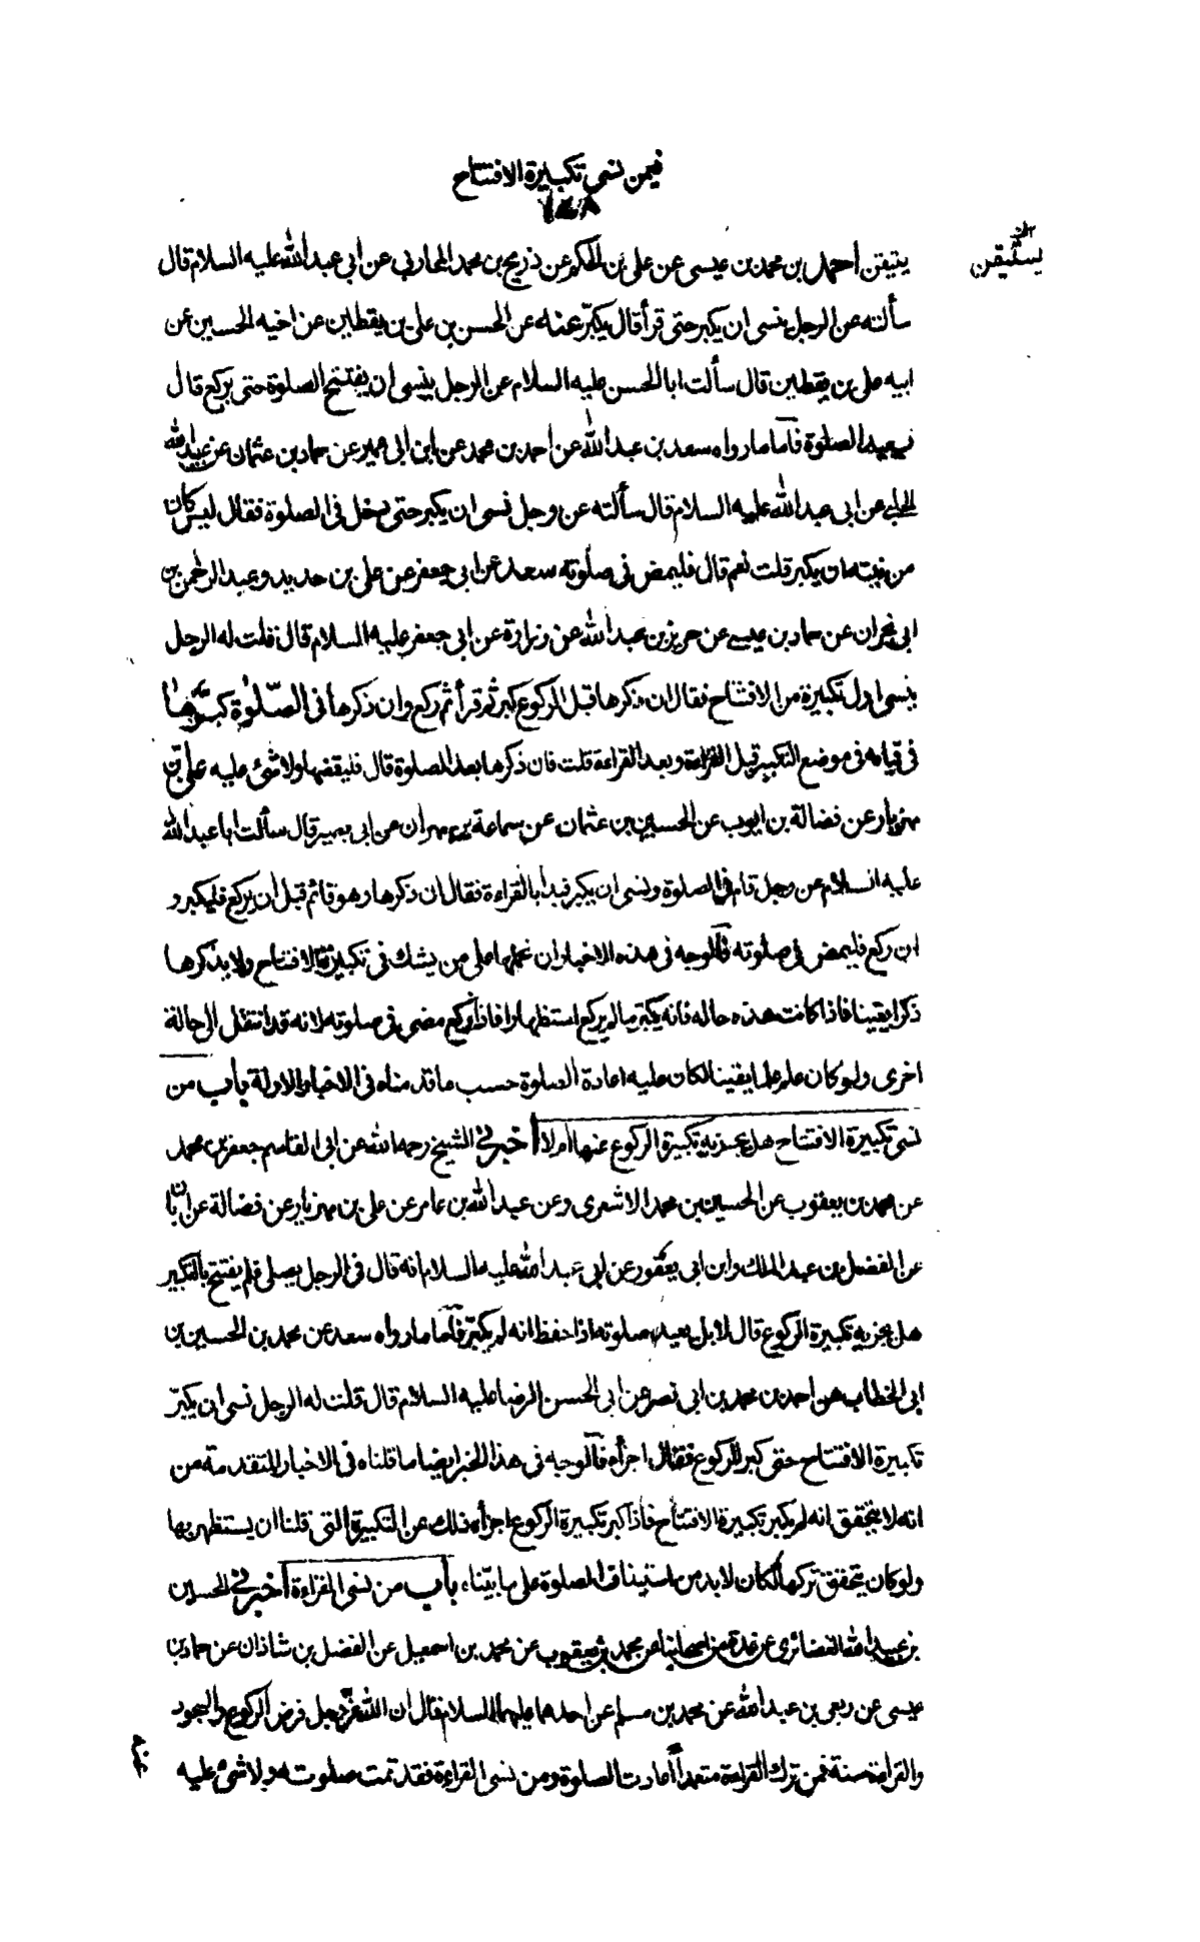 فيمن نسي تكبيرة الافتتاح
١٤٨
يستيقن
يتيقن احمد بن محمد بن عيسى عن علي بن الحكم عن ذريح بن محمد المحاربي عن ابي عبد الله عليه السلام قال
سألته عن الرجل ينسى ان يكبر حتى قرأ قال يكبر عنه عن الحسن بن علي بن يقطين عن اخيه الحسين عن
ابيه علي بن يقطين قال سألت ابا الحسن عليه السلام عن الرجل ينسى ان يفتتح الصلوة حتى يركع قال
يعيد الصلوة فأما ما رواه سعد بن عبد الله عن احمد بن محمد عن ابن ابي عمير عن حماد بن عثمان عن عبيد الله
الحلبي عن ابي عبد الله عليه السلام قال سألته عن رجل نسي ان يكبر حتى دخل في الصلوة فقال ليس كان
من نيته ان يكبر قلت نعم قال فليمض في صلوته سعد عن ابي جعفر عن علي بن حديد وعبد الرحمن بن
ابي نجران عن حماد بن عيسى عن حريز بن عبد الله عن زرارة عن ابي جعفر عليه السلام قال قلت له الرجل
ينسى اول تكبيرة من الافتتاح فقال ان ذكرها قبل الركوع كبر ثم قرأ ثم ركع وان ذكرها في الصلوة كبرها
في قيامه في موضع التكبير قبل القراءة وبعد القراءة قلت فان ذكرها بعد الصلوة قال فليقضها ولا شئ عليه علي بن
مهزيار عن فضالة بن ايوب عن الحسين بن عثمان عن سماعة بن مهران عن ابي بصير قال سألت ابا عبد الله
عليه السلام عن رجل قام في الصلوة ونسي ان يكبر فبدأ بالقراءة فقال ان ذكرها وهو قائم قبل ان يركع فليكبر و
ان ركع فليمض في صلوته فالوجه في هذه الاخبار ان نحملها على من يشك في تكبيرة الافتتاح ولا يذكرها
ذكرا يقينا فاذا كانت هذه حاله فانه يكبر ما لم يركع استظهارا فاذا ركع مضى في صلوته لانه قد انتقل الى حالة
اخرى ولو كان علم علما يقينا لكان عليه اعادة الصلوة حسب ما قدمناه في الاخبار الاولة باب من
نسي تكبيرة الافتتاح هل يجزيه تكبيرة الركوع عنها ام لا اخبرني الشيخ رحمه الله عن ابي القاسم جعفر بن محمد
عن محمد بن يعقوب عن الحسين بن محمد الاشعري وعن عبد الله بن عامر عن علي بن مهزيار عن فضالة عن ابان
عن الفضل بن عبد الملك وابن ابي يعفور عن ابي عبد الله عليه السلام انه قال في الرجل يصلي فلم يفتتح بالتكبير
هل يجزيه تكبيرة الركوع قال لا بل يعيد صلوته اذا حفظ انه لم يكبر فأما ما رواه سعد عن محمد بن الحسين بن
ابي الخطاب عن احمد بن محمد بن ابي نصر عن ابي الحسن الرضا عليه السلام قال قلت له الرجل نسي ان يكبر
تكبيرة الافتتاح حتى كبر للركوع فقال اجزأه فالوجه في هذا الخبر ايضا ما قلناه في الاخبار المتقدمة من
انه لا يتحقق انه لم يكبر تكبيرة الافتتاح فاذا كبر تكبيرة الركوع اجزأه ذلك عن التكبيرة التي قلنا ان يستظهر بها
ولو كان يتحقق تركها لكان لا بد من استيناف الصلوة على ما بيناه باب من نسي القراءة اخبرني الحسين
بن عبيد الله الغضائري عن عدة من اصحابنا عن محمد بن يعقوب عن محمد بن اسمعيل عن الفضل بن شاذان عن حماد بن
عيسى عن ربعي بن عبد الله عن محمد بن مسلم عن احدهما عليهما السلام قال ان الله عز وجل فرض الركوع والسجود
والقراءة سنة فمن ترك القراءة متعمدا اعاد الصلوة ومن نسي القراءة فقد تمت صلوته ولا شئ عليه